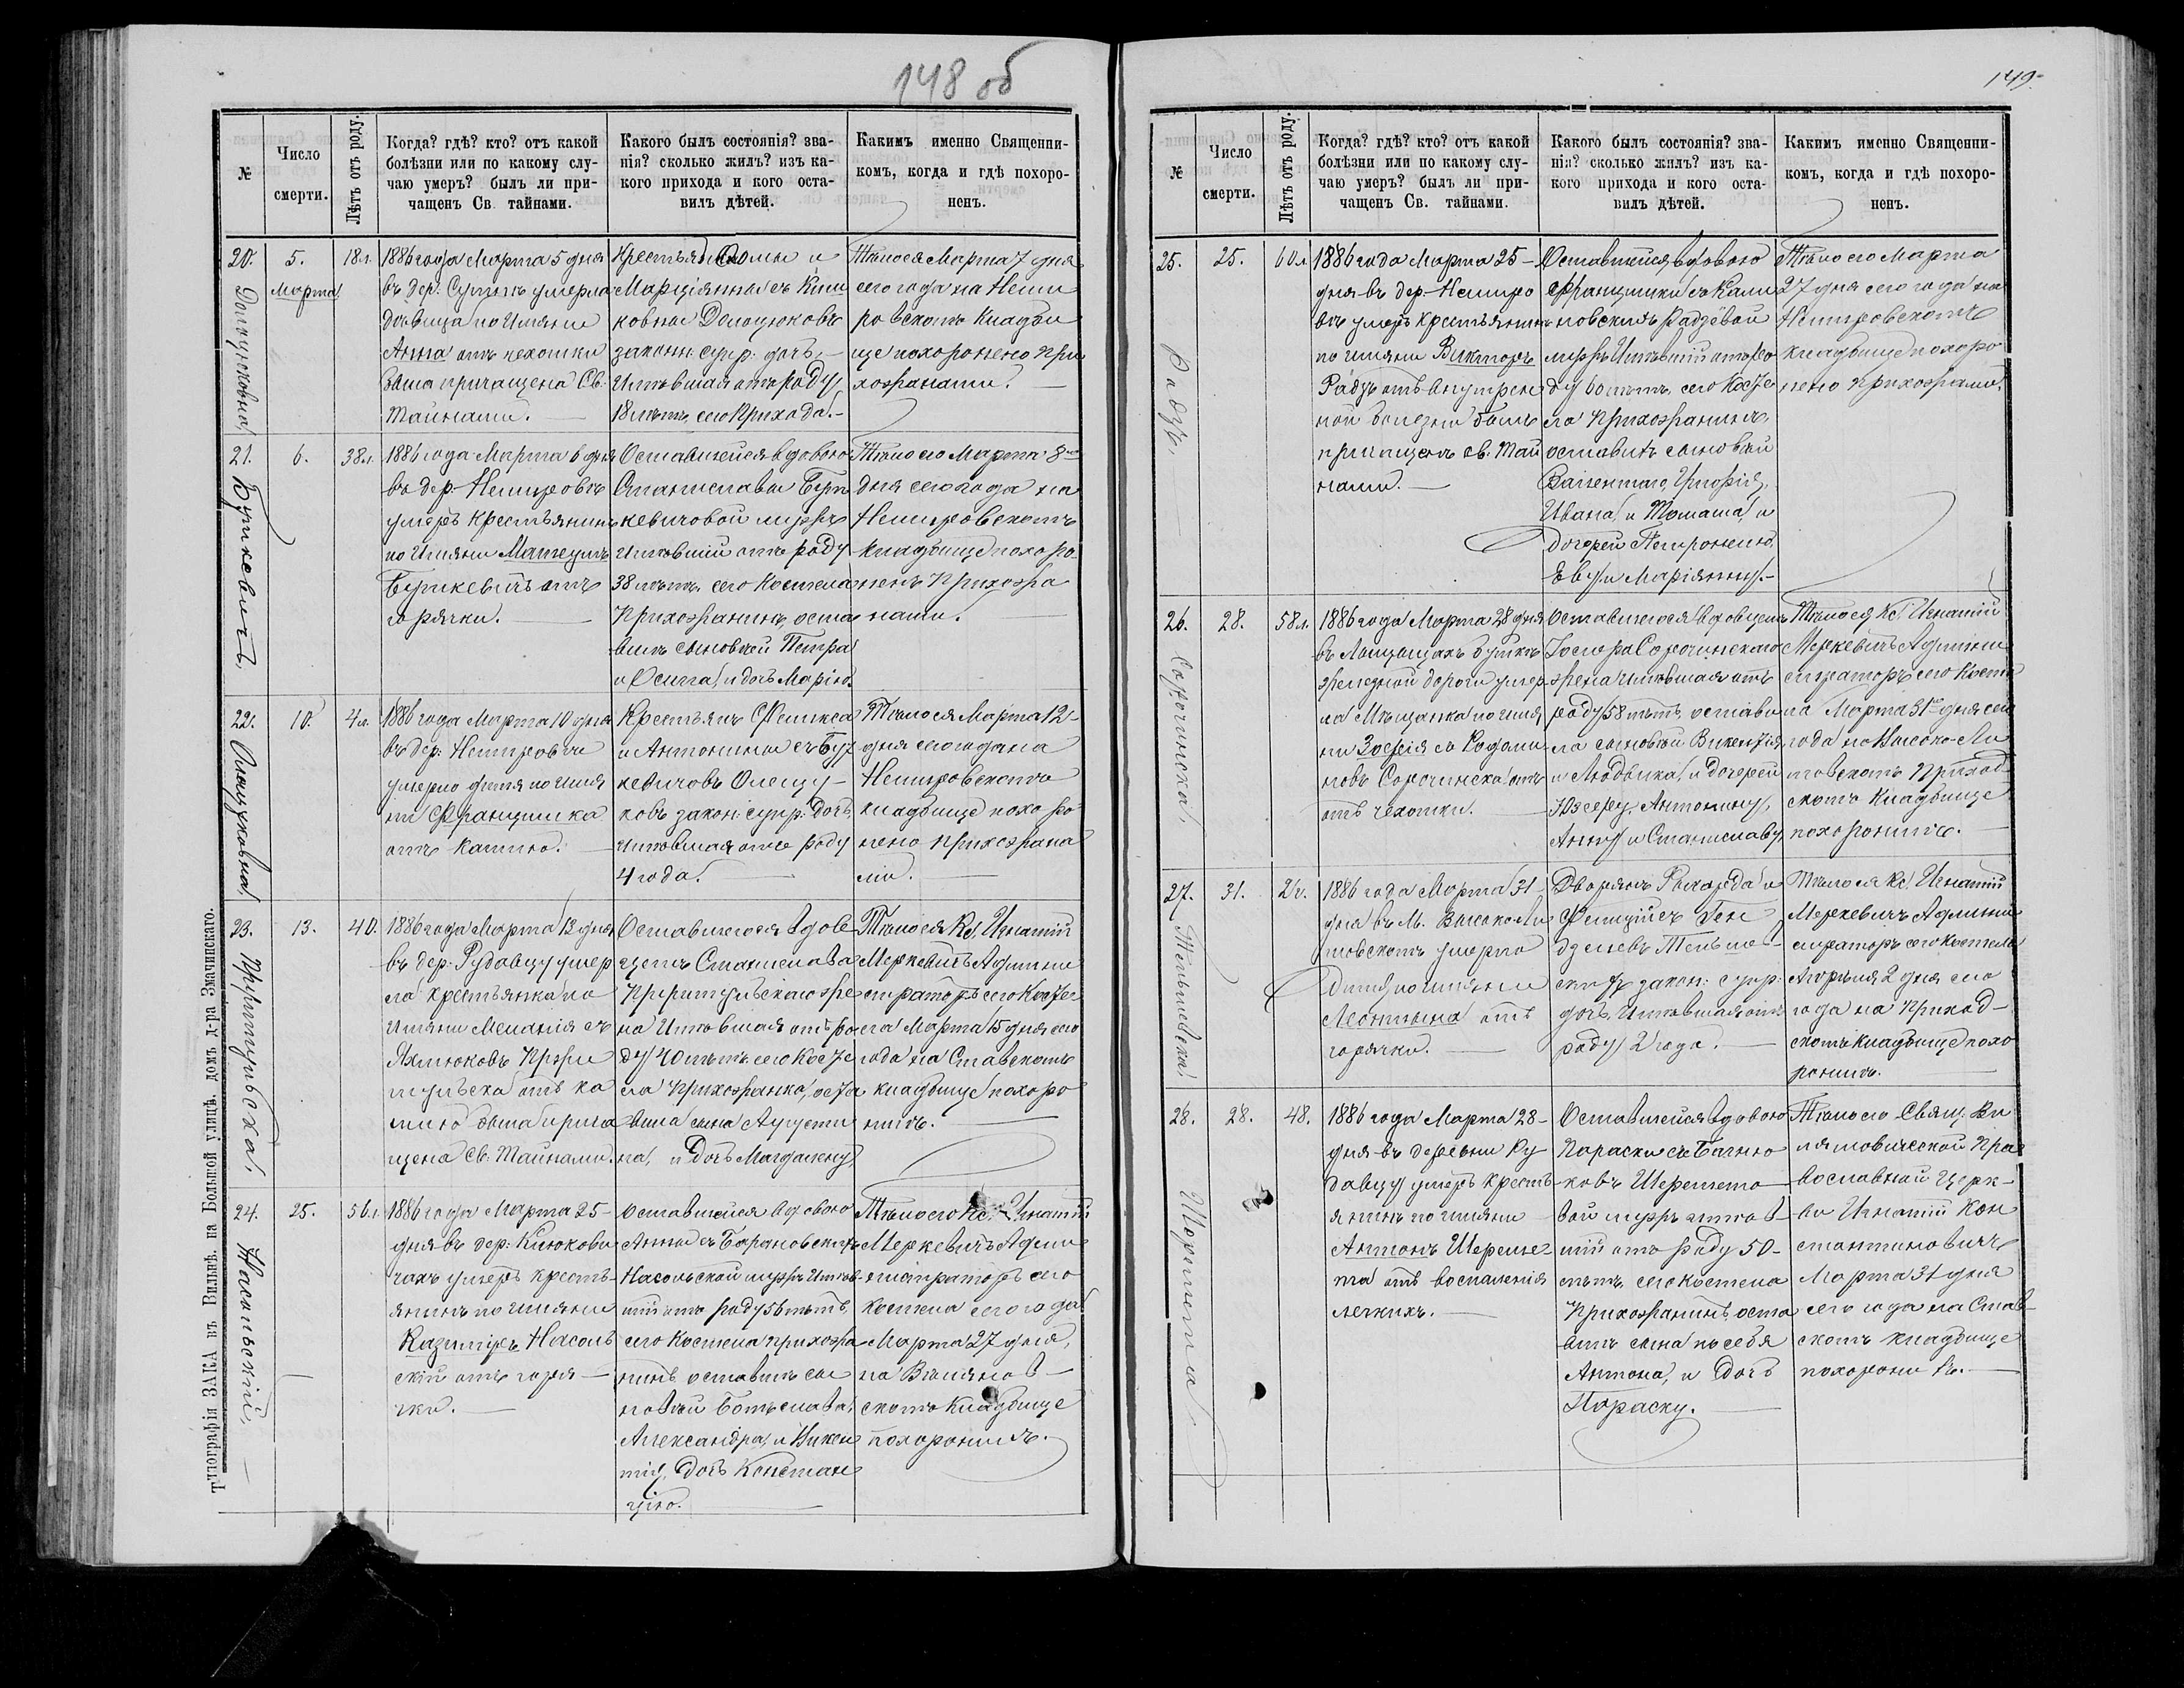 148 об
№
Число
смерти.
Лѣтъ отъ роду.
Когда? гдѣ? кто? отъ какой
болѣзни или по какому слу-
чаю умеръ? былъ ли при-
чащенъ Св. тайнами.
Какого былъ состоянія? зва-
нія? сколько жилъ? изъ ка-
кого прихода и кого оста-
вилъ дѣтей.
Какимъ именно Священни-
комъ, когда и гдѣ похоро-
ненъ.
20.
5.
Марта
18 л.
1886 года Марта 5 дня
въ дер. умерла
дѣвица по имяни
Анна отъ чехотки
была причащена Св.
Тайнами.
Крестьянъ и
Марціянны съ
законн: супр: дочь,
имѣвшая отъ роду
18 лѣтъ, сего Прихода.
Тѣло ея Марта 7 дня
сего года на Неми
ровскомъ кладби
ще похоронено при
хожанами.
21.
Буткевичъ,
6.
38 л.
1886 года Марта 6 дня
въ дер. Немировкѣ
умеръ крестьянинъ
по имяни Матеушъ
Буткевичъ отъ
горячки.
Оставшейся вдовою
Станиславы Бут
кевичовой мужъ
имѣвшій отъ роду
38 лѣтъ, сего костела
прихожанинъ, оста
вилъ сыновей Петра
и Осипа, и дочь Марію.
Тѣло его Марта 8го
дня сего года на
Немировскомъ
кладбище похоро-
ненъ прихожа
нами.
22.
10.
4 л.
1886 года Марта 10 дня
въ дер. Немировкѣ
умерло дитя по имя
ни Францишка
отъ кашлю.
Крестьянъ Феликса
и Антонины съ Бут
кевичовъ
ковъ закон: супр: дочь,
имѣвшая отъ роду
4 года.
Тѣло ея Марта 12
дня сего года на
Немировскомъ
кладбище похоро
нено прихожана
ми.
23.
13.
40.
1886 года Марта 13 дня
въ дер. Рудавцу умер
ла крестьянка по
имяни Меланія съ
отъ ка
шлю была прича
щена Св. Тайнами.
Оставшегося вдов
цемъ Станислава
же
на имѣвшая отъ ро
ду 40 лѣтъ сего косте
ла прихожанка, оста
вила сына Августи
на, и дочь Магдалену.
Тѣло ея Кс. Игнатій
Меркевичъ Админи
страторъ сего косте
ла Марта 15 дня сего
года на Ставскомъ
кладбище похоро
нилъ.
24.
Насольскій,
25.
56 л.
1886 года Марта 25
дня въ дер. Клюкови
чахъ умеръ кресть-
янинъ по имяни
Казимиръ Насоль
скій отъ горя
чки.
Оставшейся вдовою
Анны съ Барановскихъ
Насольской мужъ имѣв-
шій отъ роду 56 лѣтъ,
сего костела прихожа
нинъ оставилъ сы
новей Болеслава,
Александра, и Викен
тія, дочь Констан
цію.
Тѣло его Кс. Игнатій
Меркевичъ Админи
нистраторъ сего
костела сего года
Марта 27 дня,
на
скомъ кладбище
похоронилъ.
Типографія ЗАКА въ Вильнѣ. на Большой улицѣ. домъ д-ра Змачинскаго.
149.
№
Число
смерти.
Лѣтъ отъ роду.
Когда? гдѣ? кто? отъ какой
болѣзни или по какому слу-
чаю умеръ? былъ ли при-
чащенъ Св. тайнами.
Какого былъ состоянія? зва-
нія? сколько жилъ? изъ ка-
кого прихода и кого оста-
вилъ дѣтей.
Какимъ именно Священни-
комъ, когда и гдѣ похоро-
ненъ.
25.
25.
60 л.
1886 года Марта 25
дня въ дер. Немиро
вкѣ умеръ крестьянинъ
по имяни Викторъ
отъ внутрен
ной болезни былъ
причащенъ св. Тай
нами.
Оставшейся вдовою
Францишки съ Кали
новскихъ
мужъ имѣвшій отъ ро
ду 60 лѣтъ, сего косте
ла прихожанинъ,
оставилъ сыновей
Валентаго,
Ивана, и Томаша, и
дочерей Петронелю,
Еву, и Маріянну.
Тѣло его Марта
27 дня сего года на
Немировскомъ
кладбище похоро
нено прихожами.
26.
Сорочинска,
28.
58 л.
1886 года Марта 28 дня
въ будкѣ
железной дороги умер
ла Мѣщанка по имя
ни Зофія съ
новъ Сорочинска отъ
отъ чехотки.
Оставшегося вдовцемъ
Сорочинского
жена имѣвшая отъ
роду 58 лѣтъ остави
ла сыновей Викентія
и Людвика, и дочерей
Юзефу, Антонину,
Анну и Станиславу,
Тѣло ея Кс. Игнатій
Меркевичъ Админи
страторъ сего косте
ла Марта 31го дня сего
года на Высоко-Ли
товскомъ приход
скомъ кладбище
похоронилъ.
27.
31.
2 г.
1886 года Марта 31
дня въ М. Высоко-Ли
товскомъ умерло
дитя по имяни
Леонтина отъ
горячки.
Дворянъ Рихарда и
Фелиціи съ
закон: супр:
дочь, имѣвшая отъ
роду 2 года.
Тѣло ея Кс. Игнатій
Меркевичъ Админи
страторъ сего костела
Апрѣля 2 дня сего
года на приход-
скомъ кладбище похо
ронилъ.
28.
Шеремета
28.
48.
1886 года Марта 28
дня въ деревни Ру
давцу умеръ кресть
янинъ по имяни
Антонъ Шереме
та отъ воспаленія
легкихъ.
Оставшейся вдовою
Параски съ
ковъ Шеремето
вой мужъ имѣв
шій отъ роду 50
лѣтъ, сего костела
прихожанинъ, оста
вилъ сына по себя
Антона, и дочь
Параску.
Тѣло его Свящ.
Пра
вославной Церк-
ви Игнатій Кон
стантиновичъ
Марта 31 дня
сего года на Став
скомъ кладбище
похоронилъ.